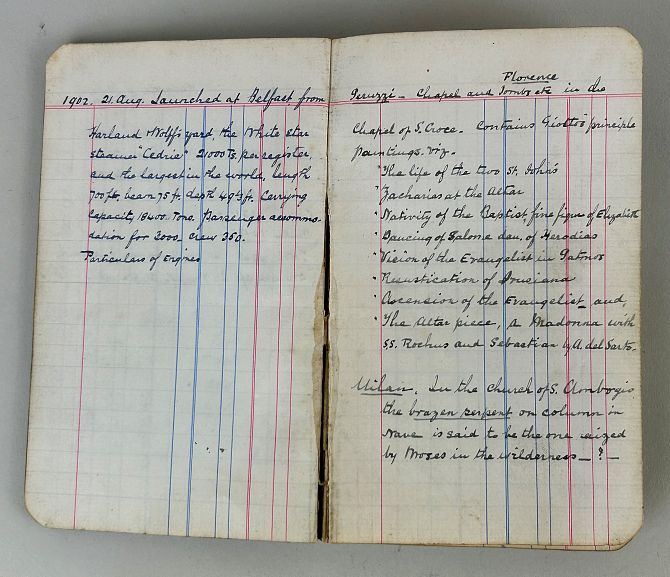 1902. 21 Aug. Launched at Belfast from
Harland & Wolff's yard, the White Star
steamer "Cedric" 21000 Ts. per register,
and the largest in the world, length
700 ft, beam 75 ft. depth 49⅓ ft. Carrying
capacity, 18400 Tons. Passenger accommo-
dation for 3000 crew 350.
Particulars of Engines
Florence
Peruzzi - Chapel and Tomb etc in the
Chapel of S. Croce. Contains Giotto's principle
paintings. viz.
"The life of the two St. John's
"Zacharias at the Altar
"Nativity of the Baptist, fine figure of Elizabeth
"Dancing of Salome dau, of Herodias
"Vision of the Evangelist in Patmos
"Resustication of Drusiana
"Ascension of the Evangelist and,
"The Altar piece, a Madonna with
SS. Rochus and Sebastian by A. del Sarto.
Milan. In the church of S. Ambrogio
the brazen serpent on column in
Nave is said to be the one raized
by Moses in the wilderness - ? -